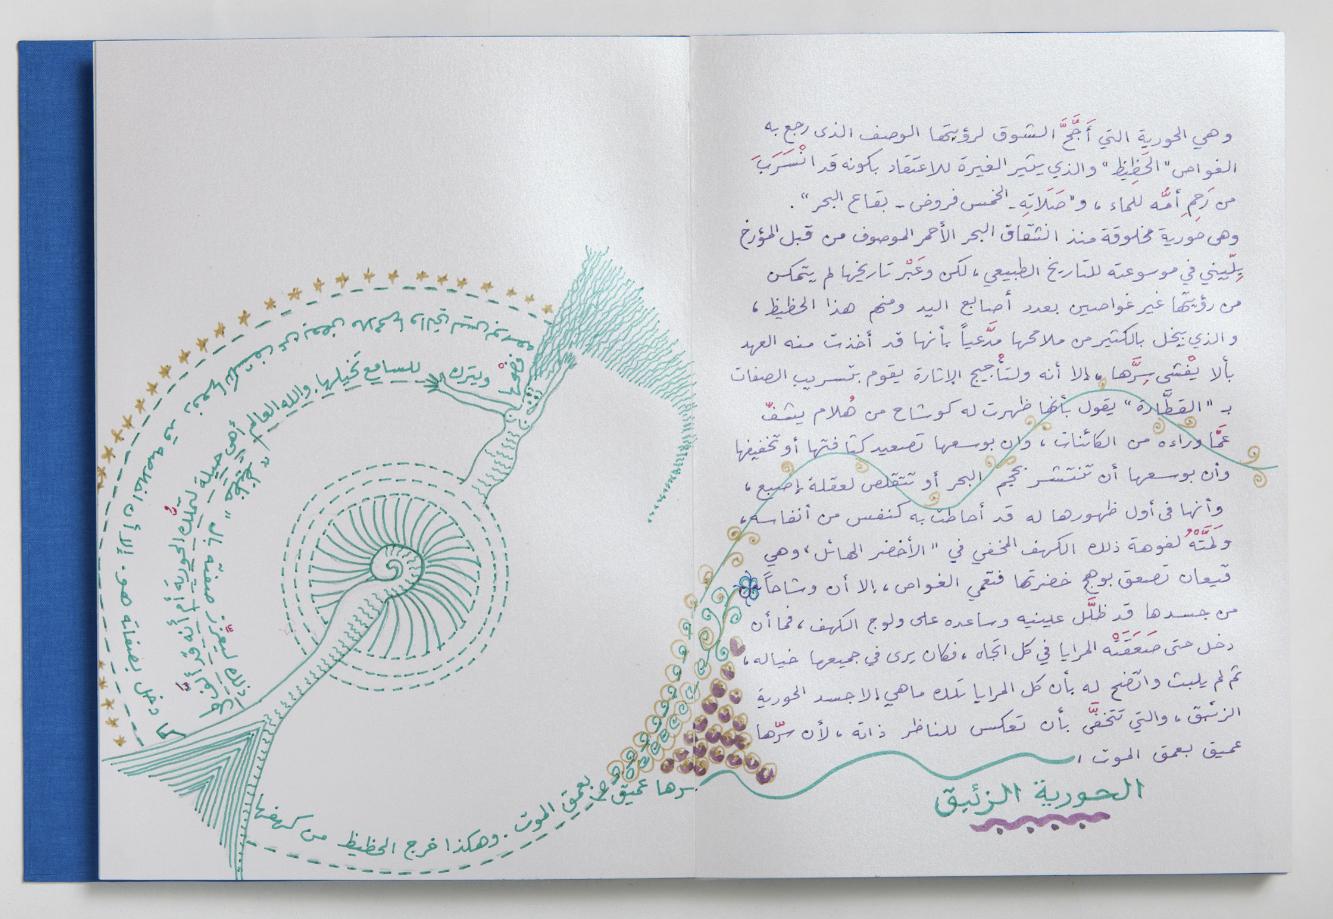 وهي الحورية التي أَجَّجَّ الشوق لرؤيتها الوصف الذى رجع به
الغواص "الحَظِيظ" والذي يثير الغيرة للاعتقاد بكونه قد انْسَرَبَ
من رَحِمِ أمُّه للماء ، و"صَلَاتِهِ ـ الخمس فروض ـ بقاع البحر" .
وهى حورية مخلوقة منذ انشقاق البحر الأحمر الموصوف من قبل المؤرخ
بِلّيني في موسوعته للتاريخ الطبيعي ، لكن وعَبْر تاريخها لم يتمكن
من رؤيتها غير غواصين بعدد أصابع اليد ومنهم هذا الحظيظ ،
والذي يبخل بالكثير من ملامحها مدَّعياً بأنها قد أخذت منه العهد
بألا يفْشى سِرَّها ، إلا أنه ولتأْجيج الإثارة يقوم بتسريب الصفات
بـ "القطَّارة" يقول بأنها ظهرت له كوشاح من هُلام يشفّ
عمَّا وراءه من الكائنات ، وان بوسعها تصعيد كثافتها أو تخفيفها
وأن بوسعها أن تنتشر بحجم البحر أو تتقلص لعقلة إصبع ،
وأنها في أول ظهورها له قد أحاطت به كنفس من أنفاسه ،
ولَمَّتْهُ لفوهة ذلك الكهف المخفي في "الأخضر الهائل ، وهي
قيعان تصعق بوهج خضرتها فتعمي الغواص ، إلا أن وشاحاً
من جسدها قد ظلَّل عينيه وساعده على ولوج الكهف ، فما أن
دخل حتى صَعَقَتْه المرايا في كل اتجاه ، فكان يرى في جميعها خياله ،
ثم لم يلبث واتضح له بأن كل المرايا تلك ماهي إلا جسد الحورية
الزئبق ، والتي تتخفَّى بأن تعكس للناظر ذاته ، لأن سرَّها
عميق بعمق الموت ،
الحورية الزئبق
سرها عميق بعمق الموت . وهكذا خرج الحظيظ من كهفها
ويترك للسامع تخيلها والله العالم أهى حيلة لتملُّك الحورية أم أنه قد
ذلك ليعزِّز صفته بالـ "حظيظ"